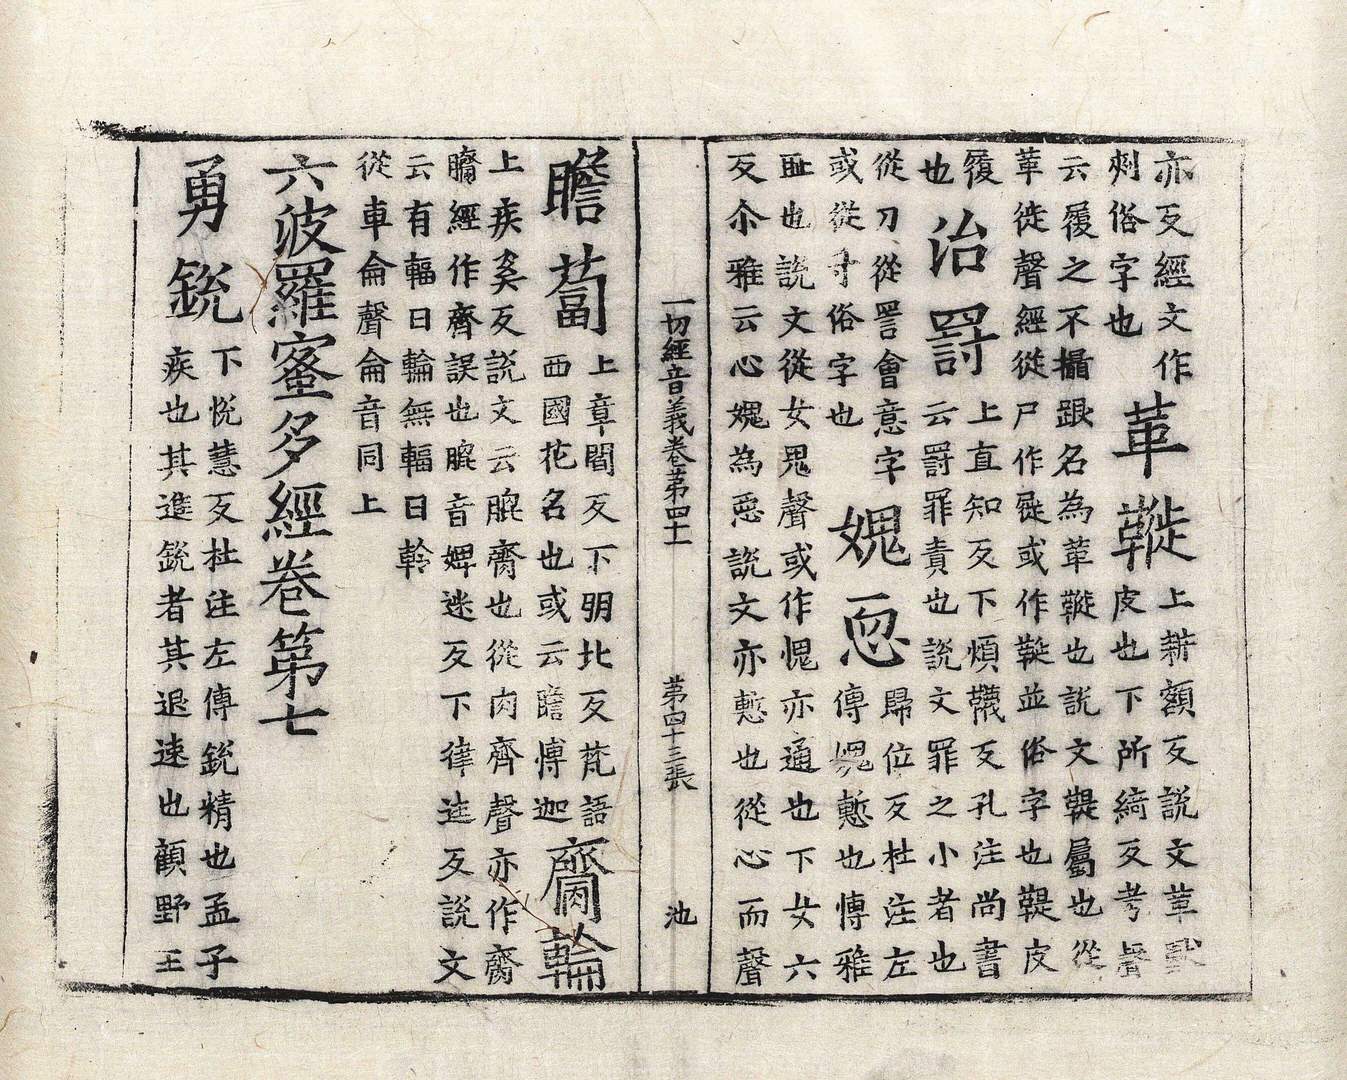 亦反經文作
刺俗字也
革𩌦
上耕額反說文革獸
皮也下所綺反考聲
云履之不攝跟名為革𩌦也說文鞮屬也從
革徙聲經從尸作屣或作𩌦並俗字也鞮皮
履
也
治罰
上直知反下煩韈反孔注尚書
云罰罪責也說文罪之小者也
從刀從詈會意字
或從寸俗字也
媿恧
歸位反杜注左
傳媿慙也愽雅
耻也說文從女鬼聲或作愧亦通也下女六
反尒雅云心媿為恧說文亦慙也從心而聲
一切經音義卷第四十一
第四十三張
池
瞻蔔
上章閻反下朋北反梵語
西國花名也或云瞻愽迦
臍輪
上疾奚反說文云膍臍也從肉齊聲亦作臍
臍經作齊誤也膍音婢迷反下律迍反說文
云有輻曰輪無輻曰軨
從車侖聲侖音同上
六波羅蜜多經卷第七
勇銳
下悅慧反杜注左傳銳精也孟子
疾也其進銳者其退速也顧野王